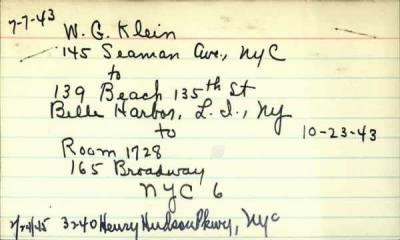 7-7-43 W. G. Klein
145 Seaman Ave., NYC
to
139 Beach 135th St
Belle Harbor, L. I., NY
to 10-23-43
Room 1728
165 Broadway
NYC 6
3240 Henry Hudson Pkwy, NYC